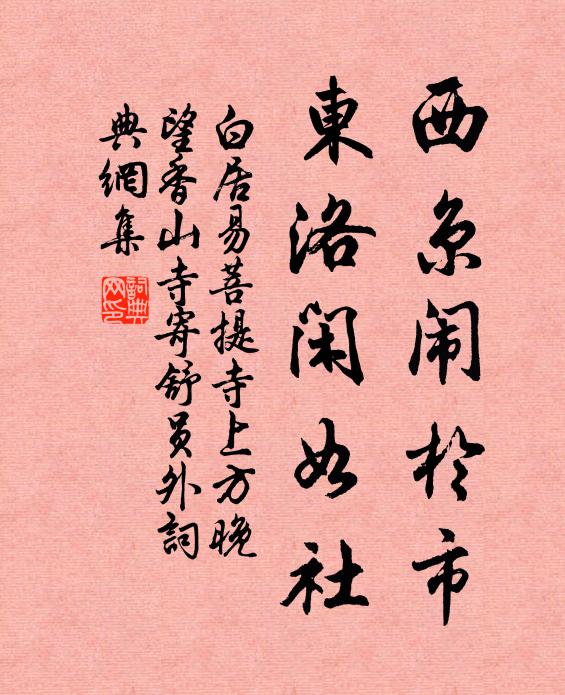 西京闹於市
東洛閑如社
白居易菩提寺上方晚
望香山寺寄舒員外詞
典網集
詞典网印